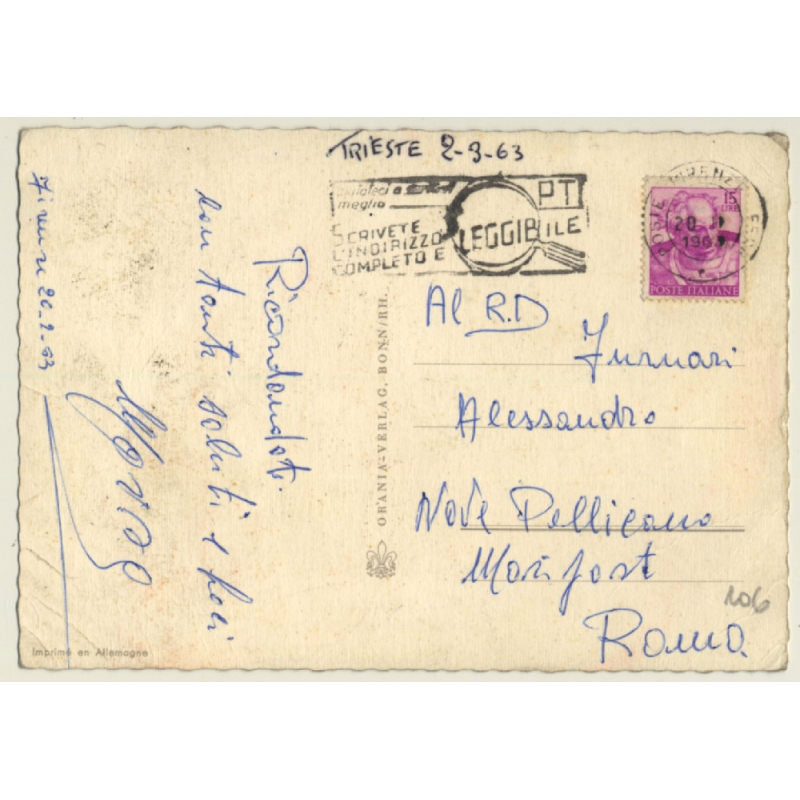 TRIESTE 2-3-63
meglio
PT
SCRIVETE
L'INDIRIZZO
COMPLETO E LEGGIBILE
POSTE FIRENZE
20
196
15
LIRE
POSTE ITALIANE
Firenze 20-2-63
Ricordandoti
con tanti saluti e baci
Mario
ORANIA-VERLAG, BONN/RH.
Al R.D
Furnari
Alessandro
Nave Pellicano
Marifast
Roma
106
Imprimé en Allemagne